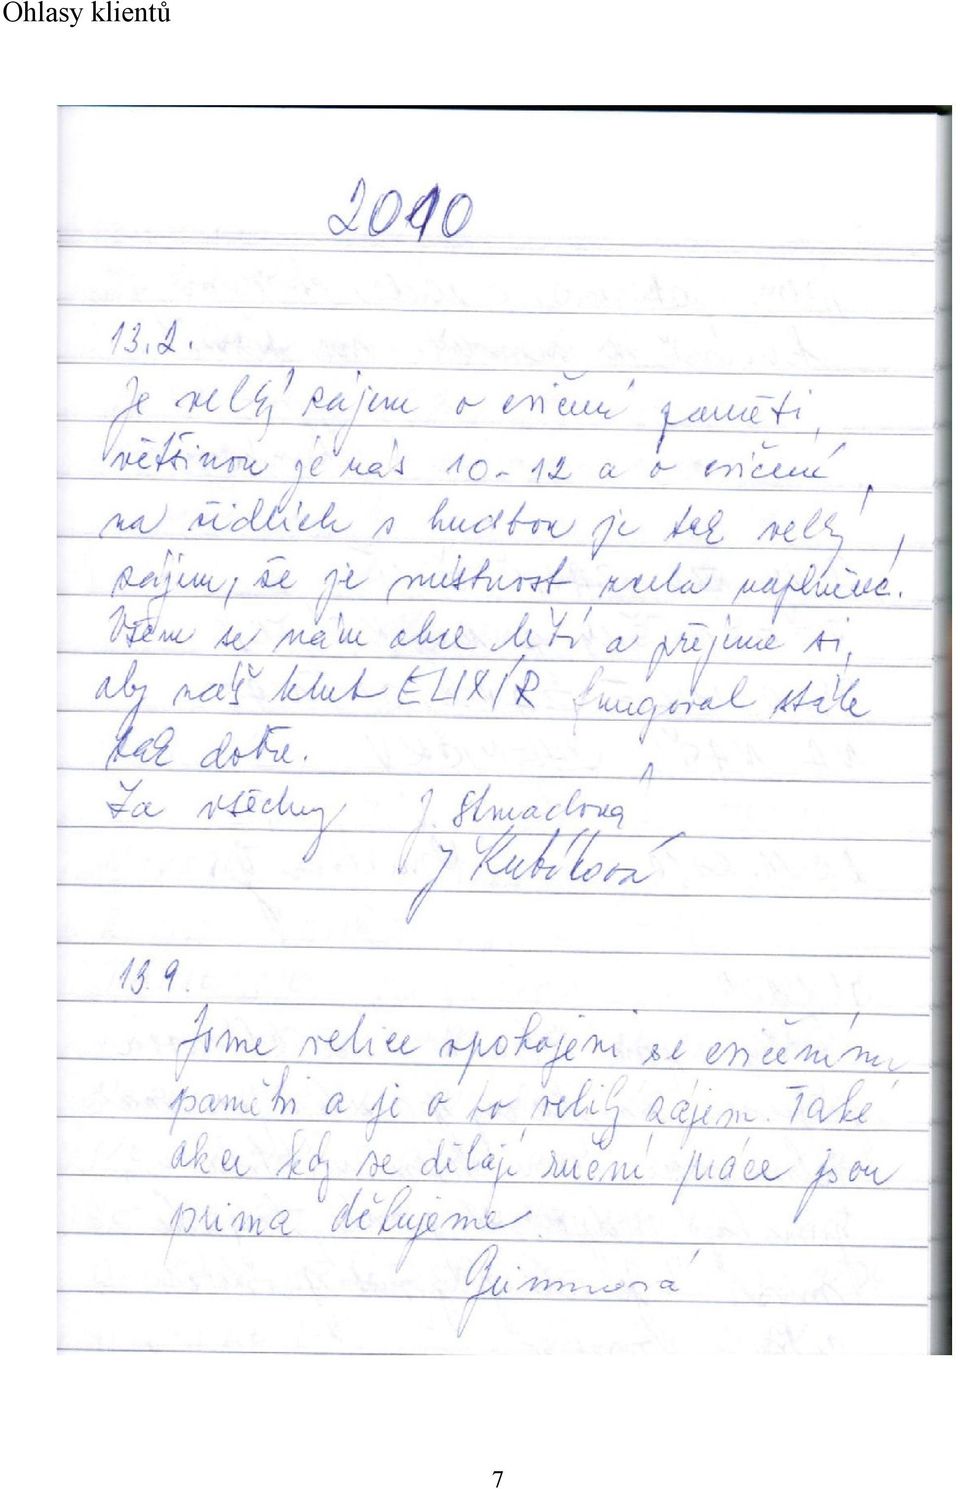 Ohlasy klientů
2010
13.2.
Je velký zájem o cvičení paměti,
většinou je nás 10-12 a o cvičení
na židlích s hudbou je tak velký
zájem, že je místnost zcela naplněná.
Všem se nám akce líbí a přejme si,
aby náš klub ELIXÍR fungoval stále
tak dobře.
Za všechny J. Strnadová
J Kubíková
13.9.
Jsme velice spokojeni se cvičením
paměti a je o to veliký zájem. Také
akce kdy se dělají ruční práce jsou
prima děkujeme.
7